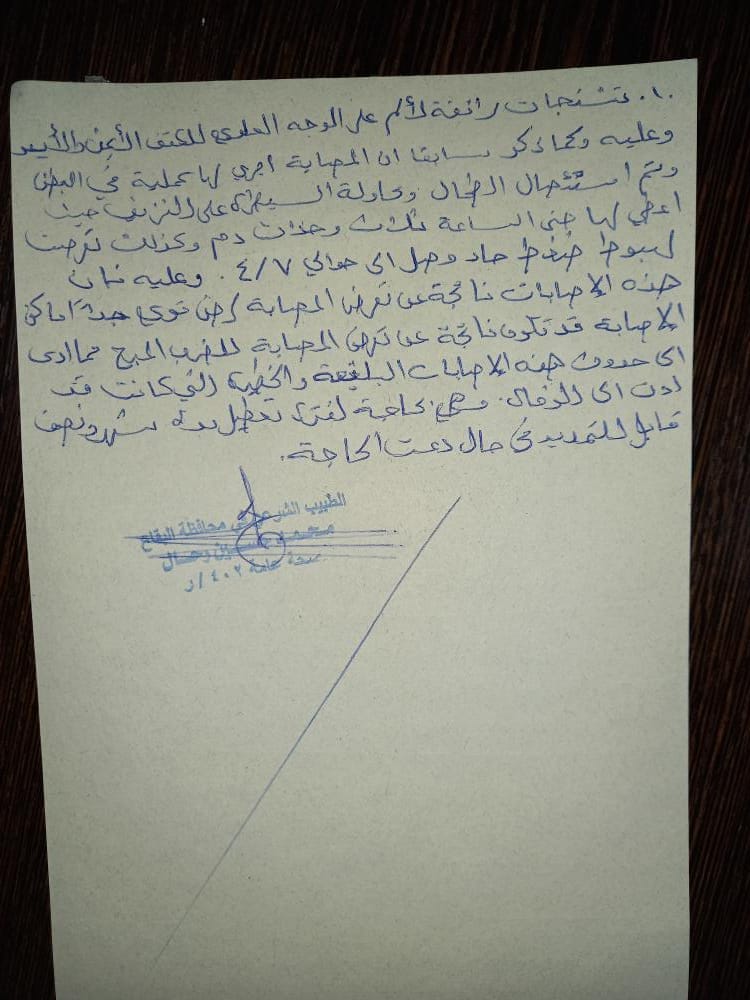 ١٠. تشنجات رافعة لألم على الوجه العلوي للكتف الأيمن والأيسر
وعليه وكما ذكر سابقا ان المصابة اجري لها عملية في البطن
وتم استئصال الطحال ومحاولة السيطرة على النزيف حيث
اعطي لها حتى الساعة ثلاث وحدات دم وكذلك تعرضت
لهبوط ضغط حاد وصل الى حوالي ٤/٧. وعليه فان
هذه الإصابات ناتجة عن تعرض المصابة لرض قوي جداً اماكن
الإصابة قد تكون ناتجة عن تعرض المصابة للضرب المبرح مما ادى
الى حدوث هذه الإصابات البليغة والخطيرة التي كانت قد
ادت الى الوفاة. وهي بحاجة لفترة تعطيل مدة شهر ونصف
قابل للتمديد في حال دعت الحاجة.
الطبيب الشرعي في محافظة البقاع
محمد حسين رحال
صحة عامة ٤٠٢/ر